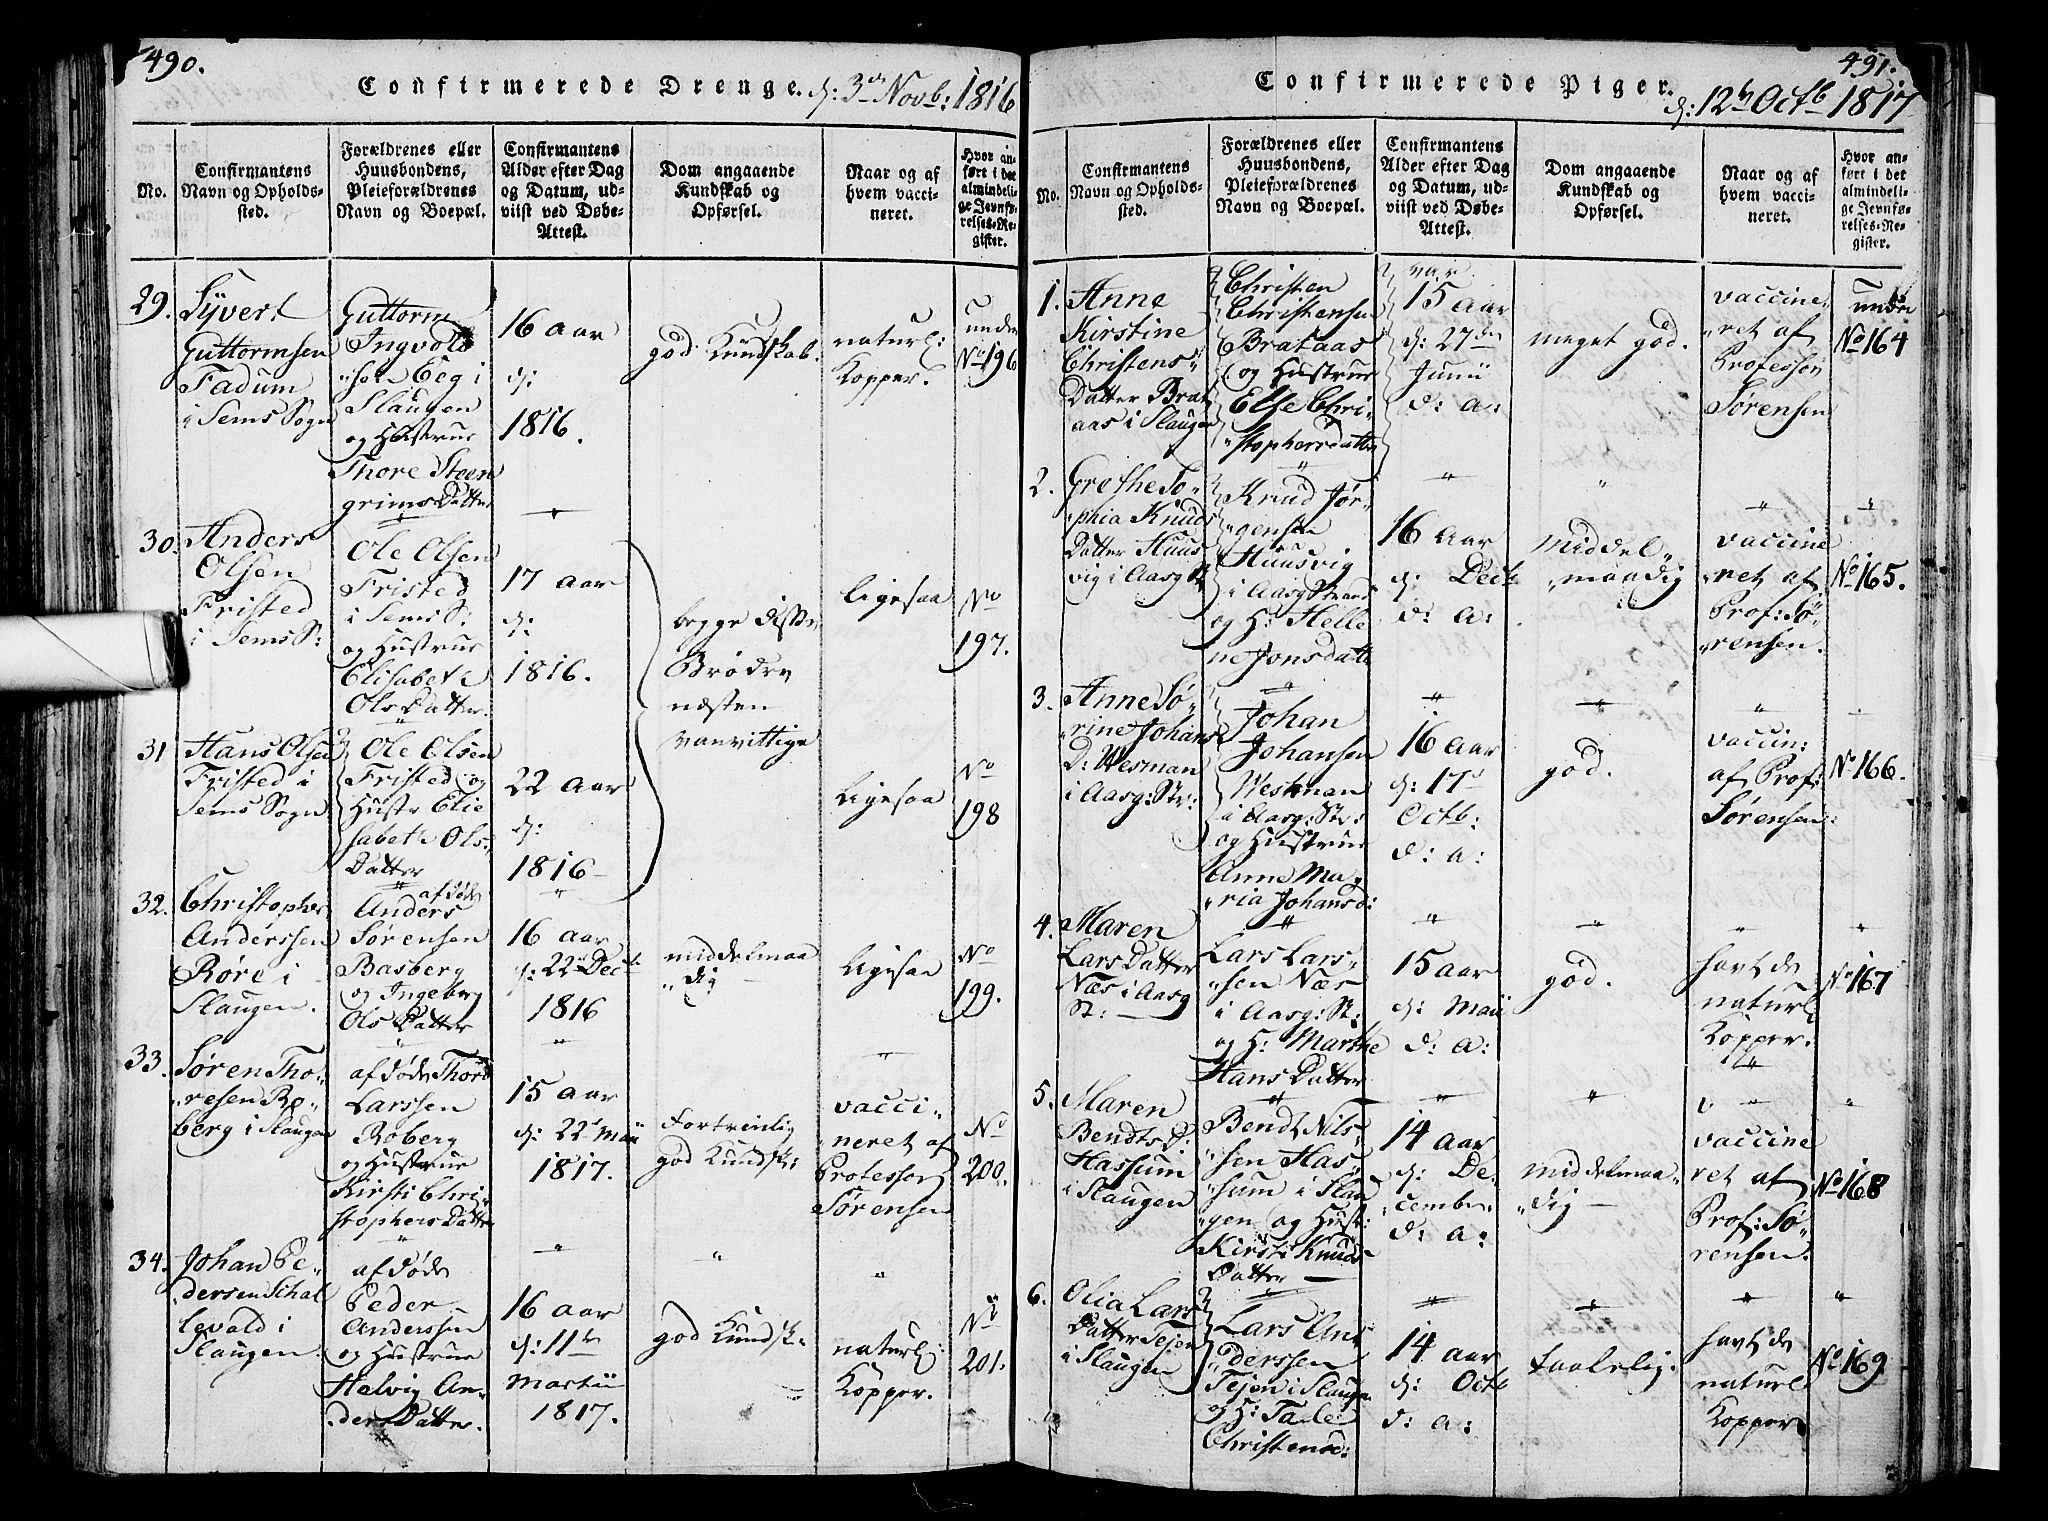 490.
Confirmerede Drenge. d: 3die Novb: 1816
No.
Confirmantens
Navn og Opholds-
sted.
Forældrenes eller
Huusbondens,
Pleieforældrenes
Navn og Boepæl.
Confirmantens
Alder efter Dag
og Datum, ud-
viist ved Døbe-
Attest.
Dom angaaende
Kundskab og
Opførsel.
Naar og af
hvem vacci-
neret.
Hvor an-
ført i det
almindeli-
ge Jevnfø-
relses-Re-
gister.
29.
Syvert
Guttormsen
Fadum
i Sems Sogn
Guttorm
Ingvold
"sen Eeg i
Slaugen
og Hustrue
Thore Steen
grims Datter
16 aar
d:
1816.
god Kundskab.
naturl:
Kopper.
under
No 196
30.
Anders
Olsen
Fristed
i Sems S:
Ole Olsen
Fristed
i Sems S:
og Hustrue
Elisabet
Ols Datter.
17 aar
d:
1816.
begge disse
Brødre
næsten
vanvittige
ligesaa
No
197.
31
Hans Olsen
Fristed i
Sems Sogn
Ole Olsen
Fristed og
Hustr Elie
sabet Ols
Datter
22 aar
d:
1816
ligesaa
No
198
32.
Christopher
Anderssen
Røre i
Slaugen.
afdøde
Anders
Sørensen
Basberg
og Ingeborg
Ols Datter
16 aar
d: 22 Decb:
1816
middelmaa
"dig
ligesaa
No
199.
33.
Søren Tho-
"resen Ro-
berg i Slaugen
afdøde Thore
Larssen
Roberg
og Hustrue
Kirsti Chri-
stophers Datter
15 aar
d: 22 Maii
1817.
Fortrinlig
god Kundsk:
vacci-
"neret af
Professor
Sørensen
No
200.
34.
Johan Pe-
dersen Schal
levold i
Slaugen.
afdøde
Peder
Anderssen
og Hustrue
Helvig An-
ders Datter.
16 aar
d: 11te
Martii
1817.
god Kundsk:
naturl:
Kopper.
No
201.
491.
Confirmerede Piger. d: 12te Octb 1817
No.
Confirmantens
Navn og Opholds-
sted.
Forældrenes eller
Huusbondens,
Pleieforældrenes
Navn og Boepæl.
Confirmantens
Alder efter Dag
og Datum, ud-
viist ved Døbe-
Attest.
Dom angaaende
Kundskab og
Opførsel.
Naar og af
hvem vacci-
neret.
Hvor an-
ført i det
almindeli-
ge Jevnfø-
relses-Re-
gister.
1.
Anne
Kirstine
Christens
Datter Brat
aas i Slaugen
Christen
Christensen
Brataas
og Hustrue
Else Chri-
"stophersdatter
var
15 aar
d: 27de
Junii
d: a:
meget god.
vaccine
"ret af
Professor
Sørensen
under
No 164
2.
Grethe So-
"phia Knuds
Datter Huus
vig i Aasg St
Knud Jør-
"gensen
Huusvig
i Aasg Strand
og H: Helle
ne Jonsdatter
16 aar
d: Decb
d: a:
Middel-
"maadig
vaccine
"ret af
Prof: Sø-
"rensen.
No 165.
3.
Anne So-
"rine Johans
D: Wesman
i Aasg: Str:
Johan
Johansen
Westman
i Aasg: Str:
og Hustrue
Anne Ma-
"ria Johansd:
16 aar
d: 17
Octb:
d: a:
god.
vaccin:
af Prof:
Sørensen
No 166.
4.
Maren
Lars Datter
Næs i Aasg
St:
Lars Lars-
"sen Næs
i Aasg: St:
og H: Marthe
Hans Datter
15 aar
d: Maii
d: a:
god.
havt de
naturl
Kopper.
No 167
5.
Maren
Bendts D:
Hassum
i Slaugen
Bendt Nils-
"sen Has-
"sum i Slau
"gen og Hust:
Kirsti Knuds
Datter
14 aar
d: De-
"cember
d: a:
middelmaa-
"dig
vaccine
ret af
Prof: Sø-
rensen.
No 168
6.
Olia Lars
Datter Tejen
i Slaugen
Lars An-
"derssen
Tejen i Slaugen
og H: Tale
Christensd:
14 aar
d: Octb
d: a:
taalelig.
havt de
naturl
Kopper
No 169